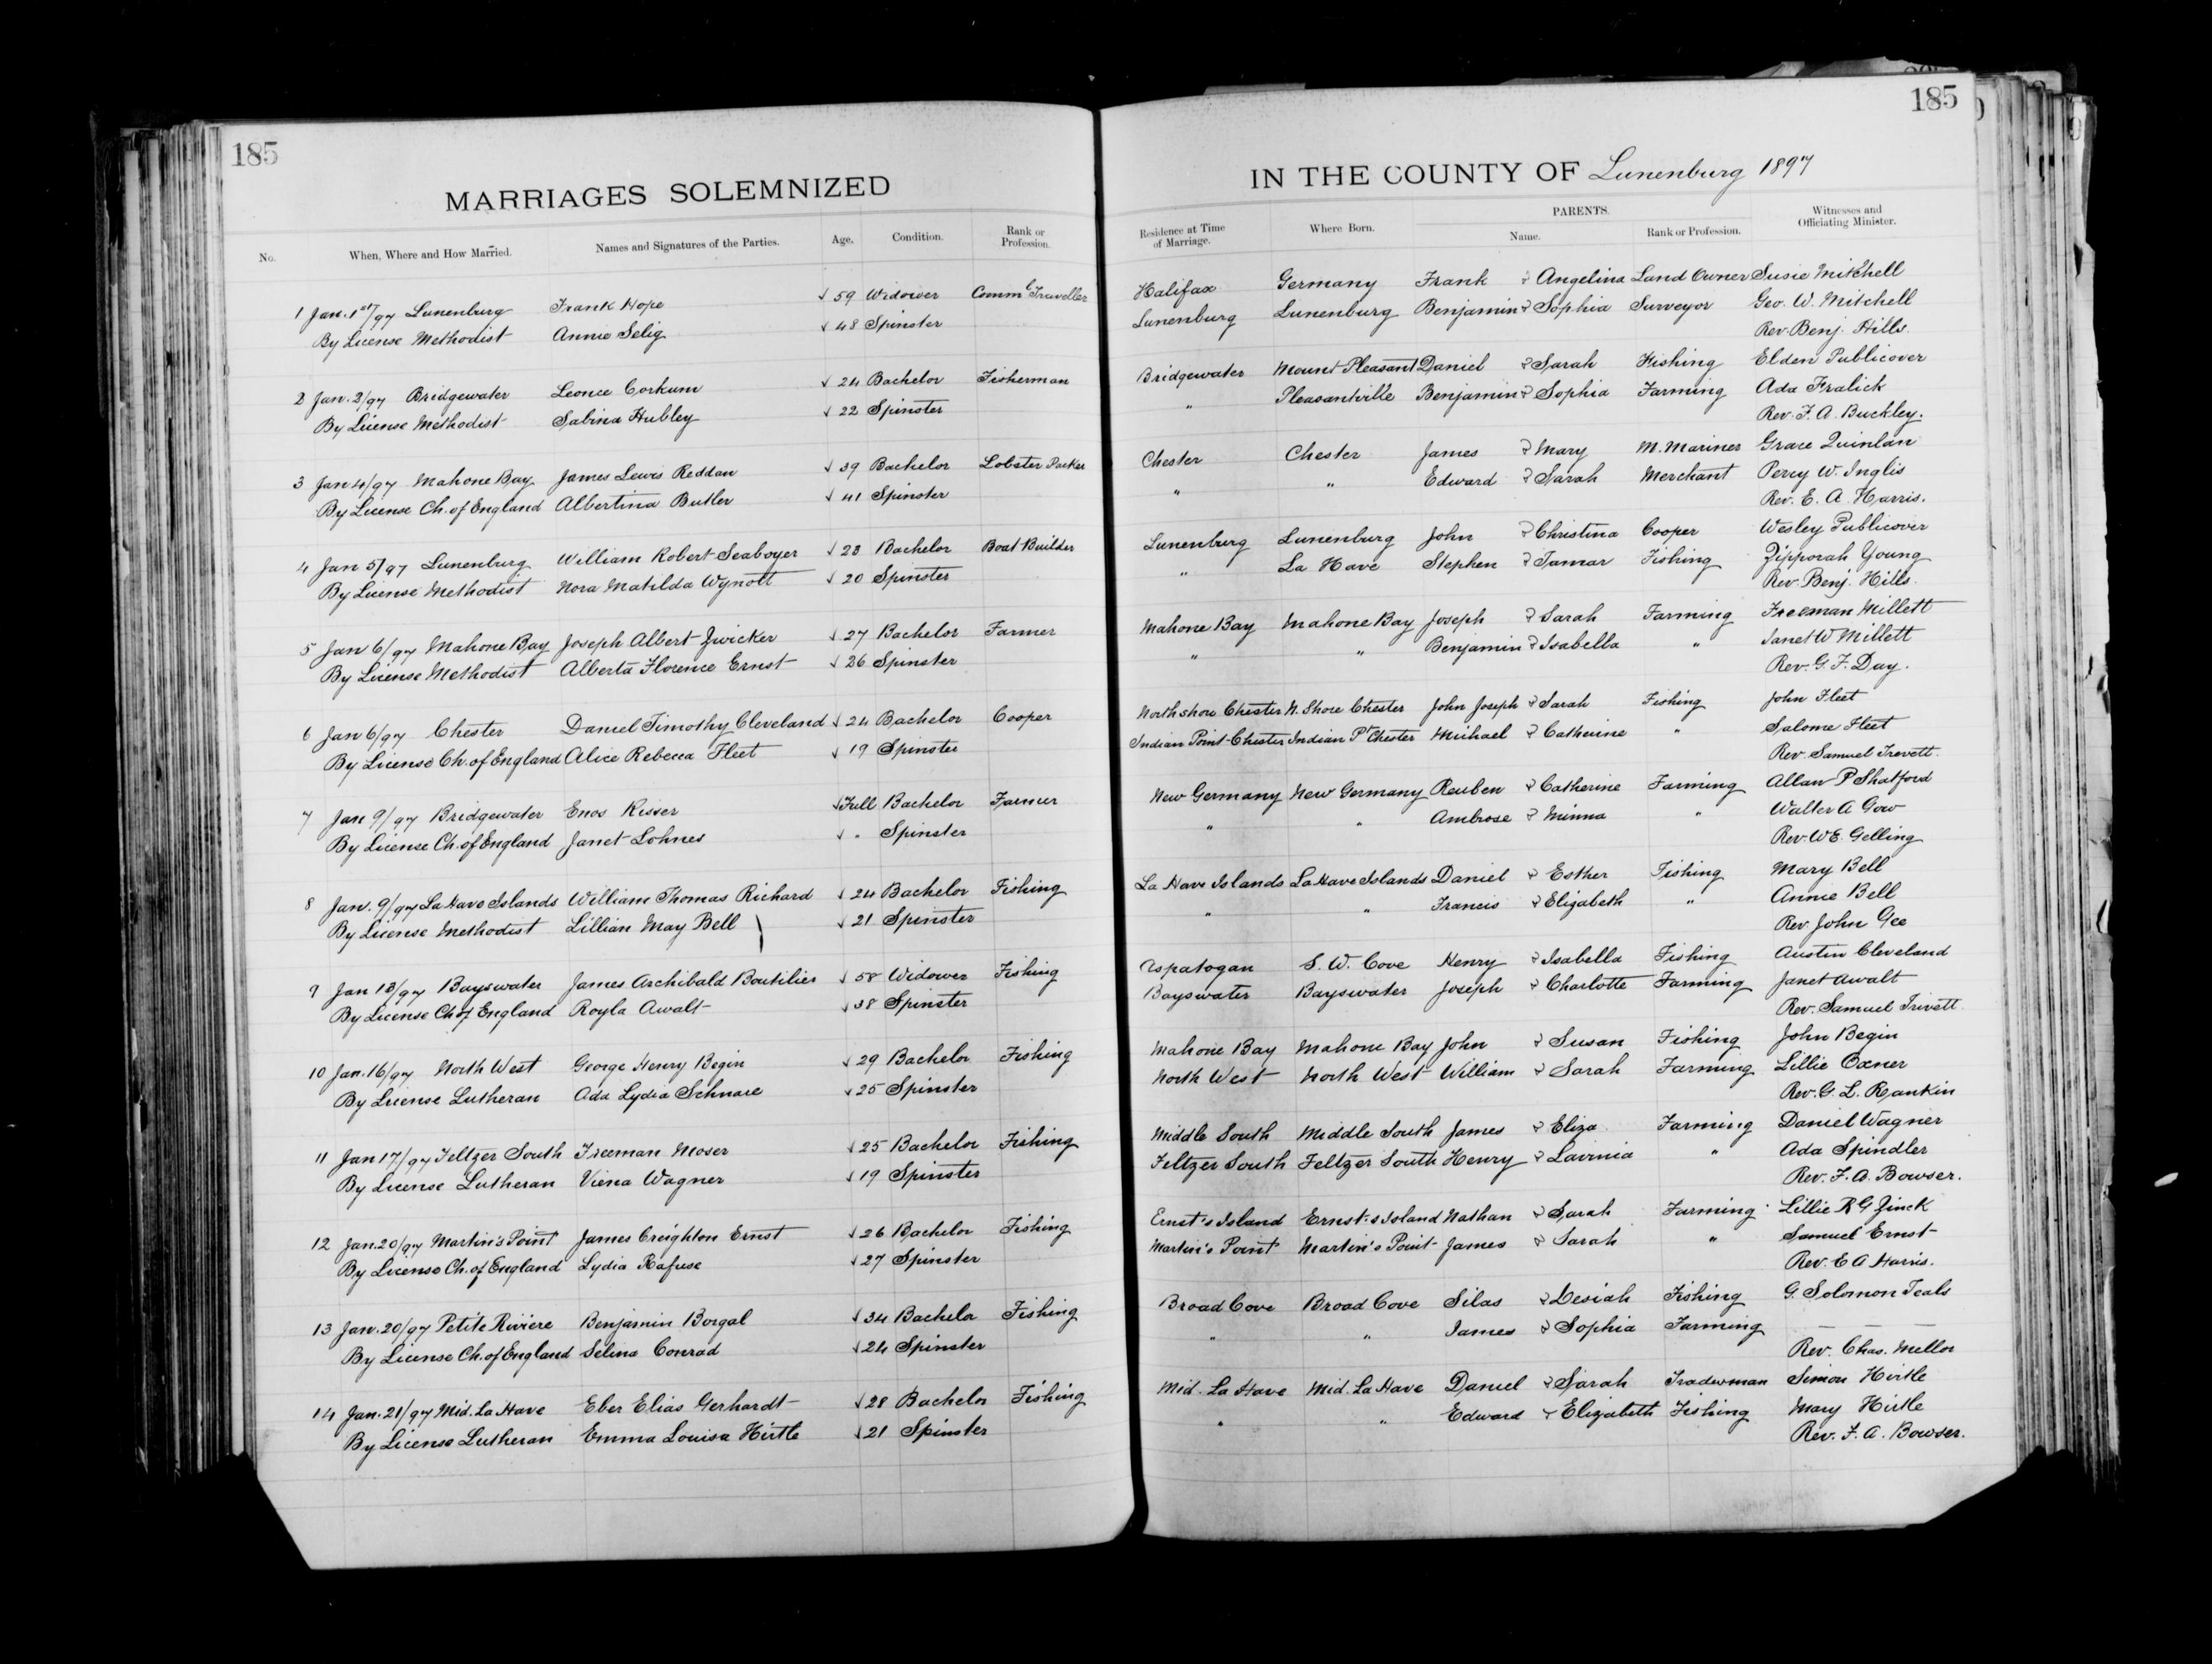 185
MARRIAGES SOLEMNIZED
No. When, Where and How Married. Names and Signatures of the Parties. Age. Condition. Rank or Profession.
1 Jan. 1st/97 Lunenburg Frank Hope 59 Widower Comml Traveller
By License Methodist Annie Selig 48 Spinster
2 Jan. 2/97 Bridgewater Leonce Corkum 24 Bachelor Fisherman
By License Methodist Sabina Hubley 22 Spinster
3 Jan 4/97 Mahone Bay James Lewis Reddan 39 Bachelor Lobster Packer
By License Ch. of England Albertina Butler 41 Spinster
4 Jan 5/97 Lunenburg William Robert Seaboyer 23 Bachelor Boat Builder
By License Methodist Nora Matilda Wynott 20 Spinster
5 Jan 6/97 Mahone Bay Joseph Albert Zwicker 27 Bachelor Farmer
By License Methodist Alberta Florence Ernst 26 Spinster
6 Jan 6/97 Chester Daniel Timothy Cleveland 24 Bachelor Cooper
By License Ch. of England Alice Rebecca Fleet 19 Spinster
7 Jan 9/97 Bridgewater Enos Risser Full Bachelor Farmer
By License Ch. of England Janet Lohnes " Spinster
8 Jan. 9/97 La Have Islands William Thomas Richard 24 Bachelor Fishing
By License Methodist Lillian May Bell 21 Spinster
9 Jan 13/97 Bayswater James Archibald Boutilier 58 Widower Fishing
By License Ch of England Royla Awalt 38 Spinster
10 Jan. 16/97 North West George Henry Begin 29 Bachelor Fishing
By License Lutheran Ada Lydia Schnare 25 Spinster
11 Jan 17/97 Feltzer South Freeman Moser 25 Bachelor Fishing
By License Lutheran Viena Wagner 19 Spinster
12 Jan. 20/97 Martin's Point James Creighton Ernst 26 Bachelor Fishing
By License Ch. of England Lydia Rafuse 27 Spinster
13 Jan. 20/97 Petite Riviere Benjamin Borgal 34 Bachelor Fishing
By License Ch. of England Selina Conrad 24 Spinster
14 Jan. 21/97 Mid. La Have Eber Elias Gerhardt 28 Bachelor Fishing
By License Lutheran Emma Louisa Hirtle 21 Spinster
185
IN THE COUNTY OF Lunenburg 1897
Residence at Time of Marriage. Where Born. PARENTS. Name. Rank or Profession. Witnesses and Officiating Minister.
Halifax Germany Frank & Angelina Land Owner Susie Mitchell
Lunenburg Lunenburg Benjamin & Sophia Surveyor Geo. W. Mitchell
Rev. Benj. Hills.
Bridgewater Mount Pleasant Daniel & Sarah Fishing Elden Publicover
" Pleasantville Benjamin & Sophia Farming Ada Fralick
Rev. F. A. Buckley.
Chester Chester James & Mary M. Mariner Grace Quinlan
" " Edward & Sarah Merchant Percy W. Inglis
Rev. E. A. Harris.
Lunenburg Lunenburg John & Christina Cooper Wesley Publicover
" La Have Stephen & Tamar Fishing Zipporah Young
Rev. Benj. Hills.
Mahone Bay Mahone Bay Joseph & Sarah Farming Freeman Millett
" " Benjamin & Isabella " Janet W Millett
Rev. G. F. Day.
North shore Chester N. Shore Chester John Joseph & Sarah Fishing John Fleet
Indian Point Chester Indian Pt Chester Michael & Catherine " Salome Fleet
Rev. Samuel Trevett.
New Germany New Germany Reuben & Catherine Farming Allan P Shatford
" " Ambrose & Minna " Walter A Gow
Rev. W E. Gelling
La Have Islands La Have Islands Daniel & Esther Fishing Mary Bell
" " Francis & Elizabeth " Annie Bell
Rev. John Gee
Aspatogan S. W. Cove Henry & Isabella Fishing Austin Cleveland
Bayswater Bayswater Joseph & Charlotte Farming Janet Awalt
Rev. Samuel Trivett
Mahone Bay Mahone Bay John & Susan Fishing John Begin
North West North West William & Sarah Farming Lillie Oxner
Rev. G. L. Rankin
Middle South Middle South James & Eliza Farming Daniel Wagner
Feltzer South Feltzer South Henry & Lavinia " Ada Spindler
Rev. F. A. Bowser.
Ernst's Island Ernst's Island Nathan & Sarah Farming Lillie R G Zinck
Martin's Point Martin's Point James & Sarah " Samuel Ernst
Rev. E A Harris.
Broad Cove Broad Cove Silas & Desiah Fishing G. Solomon Teals
" " James & Sophia Farming — — —
Rev. Chas. Mellor
Mid. La Have Mid. La Have Daniel & Sarah Tradesman Simon Hirtle
" " Edward & Elizabeth Fishing Mary Hirtle
Rev. F. A. Bowser.